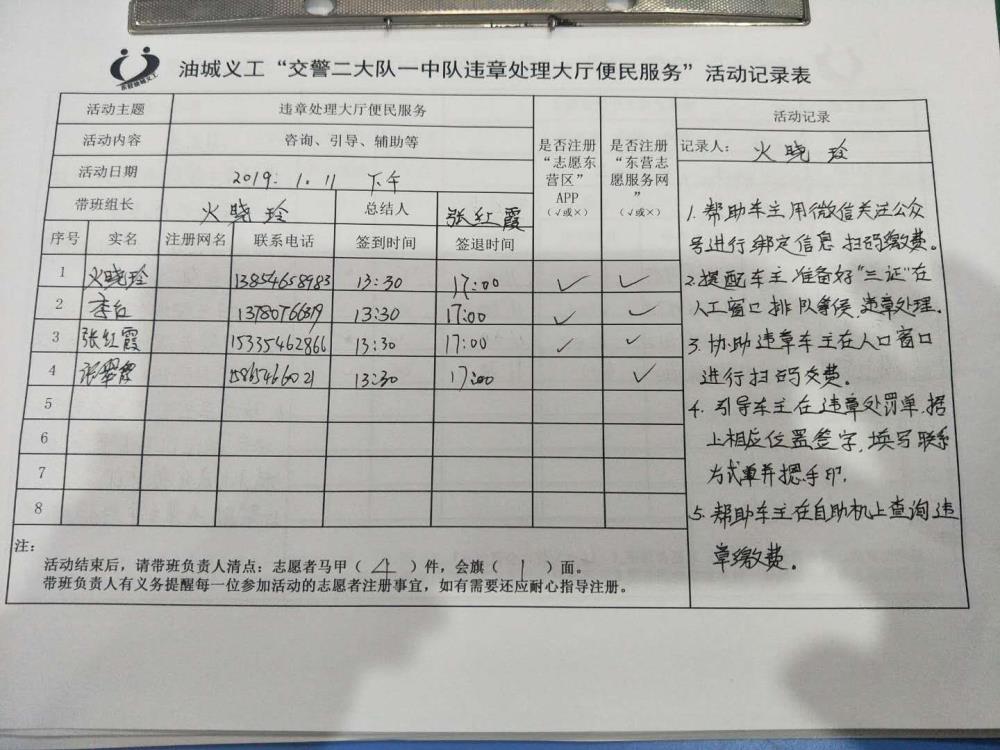 油城义工“交警二大队一中队违章处理大厅便民服务”活动记录表
活动主题 违章处理大厅便民服务
活动内容 咨询、引导、辅助等
活动日期 2019.1.11 下午
带班组长 火晓玲 总结人 张红霞
序号 实名 注册网名 联系电话 签到时间 签退时间
是否注册
“志愿东
营区”
APP
(√或×)
是否注册
“东营志
愿服务网
”
(√或×)
1 火晓玲 13854658983 13:30 17:00 ✓ ✓
2 13780766819 13:30 17:00 ✓ ✓
3 张红霞 15335462866 13:30 17:00 ✓ ✓
4 13:30 17:00 ✓
5
6
7
8
活动记录
记录人: 火晓玲
1. 帮助车主用微信关注公众
号进行绑定信息 扫码缴费。
2. 提醒车主准备好“三证”在
人工窗口排队等候违章处理.
3. 协助违章车主在人口窗口
进行扫码交费。
4. 引导车主在违章处罚单据
上相应位置签字,填写联系
方式单并摁手印.
5. 帮助车主在自助机上查询违
章缴费。
注:
活动结束后,请带班负责人清点:志愿者马甲( 4 )件,会旗( 1 )面。
带班负责人有义务提醒每一位参加活动的志愿者注册事宜,如有需要还应耐心指导注册。